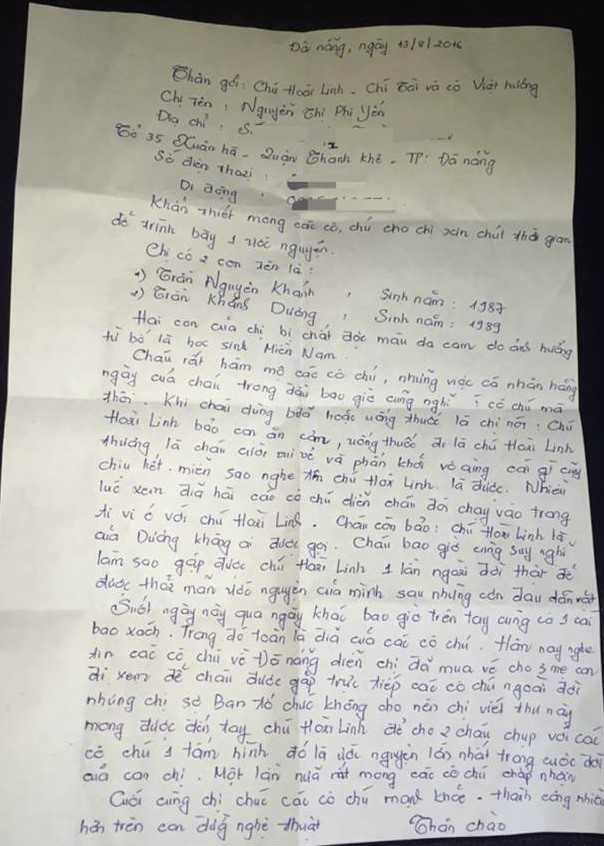 Đà nẵng, ngày 13/8/2016
Thân gởi: Chú Hoài Linh - Chí Tài và cô Việt hương
Chị tên: Nguyễn Thị Phi Yến
Địa chỉ: S.
Tổ 35 Xuân hà - Quận Thanh khê - TP: Đà nẵng
Số điện thoại:
Di động:
Khẩn thiết mong các cô, chú cho chị xin chút thời gian
để trình bày 1 ước nguyện.
Chị có 2 con tên là:
1) Trần Nguyên Khánh, Sinh năm: 1987
2) Trần Khánh Dương, Sinh năm: 1989
Hai con của chị bị chất độc màu da cam do ảnh hưởng
từ bố là học sinh Miền Nam.
Cháu rất hâm mộ các cô chú, những việc cá nhân hàng
ngày của cháu trong đầu bao giờ cũng nghĩ có cô chú mà
thôi. Khi cháu dùng bữa hoặc uống thuốc là chị nói: Chú
Hoài Linh bảo con ăn cơm, uống thuốc đi là chú Hoài Linh
thương là cháu cười vui vẻ và phấn khởi vô cùng cái gì cũng
chịu hết. miễn sao nghe tên chú Hoài Linh là được. Nhiều
lúc xem đĩa hài các cô chú diễn cháu đòi chạy vào trong
ti vi ở với chú Hoài Linh. Cháu còn bảo: chú Hoài Linh là
của Dương không ai được gọi. Cháu bao giờ cũng suy nghĩ
làm sao gặp được chú Hoài Linh 1 lần ngoài đời thật để
được thỏa mãn ước nguyện của mình sau những cơn đau dồn rất
Suốt ngày này qua ngày khác bao giờ trên tay cũng có 1 cái
bao xách. Trong đó toàn là đĩa của các cô chú. Hôm nay nghe
tin các cô chú về Đà nẵng diễn chị đã mua vé cho 3 mẹ con
đi xem để cháu được gặp trực tiếp các cô chú ngoài đời
nhưng chị sợ Ban tổ chức không cho nên chị viết thư này
mong được đến tay chú Hoài Linh để cho 2 cháu chụp với các
cô chú 1 tấm hình đó là ước nguyện lớn nhất trong cuộc đời
của con chị. Một lần nữa rất mong các cô chú chấp nhận
Cuối cùng chị chúc các cô chú mạnh khỏe - thành công nhiều
hơn trên con đường nghệ thuật Thân chào